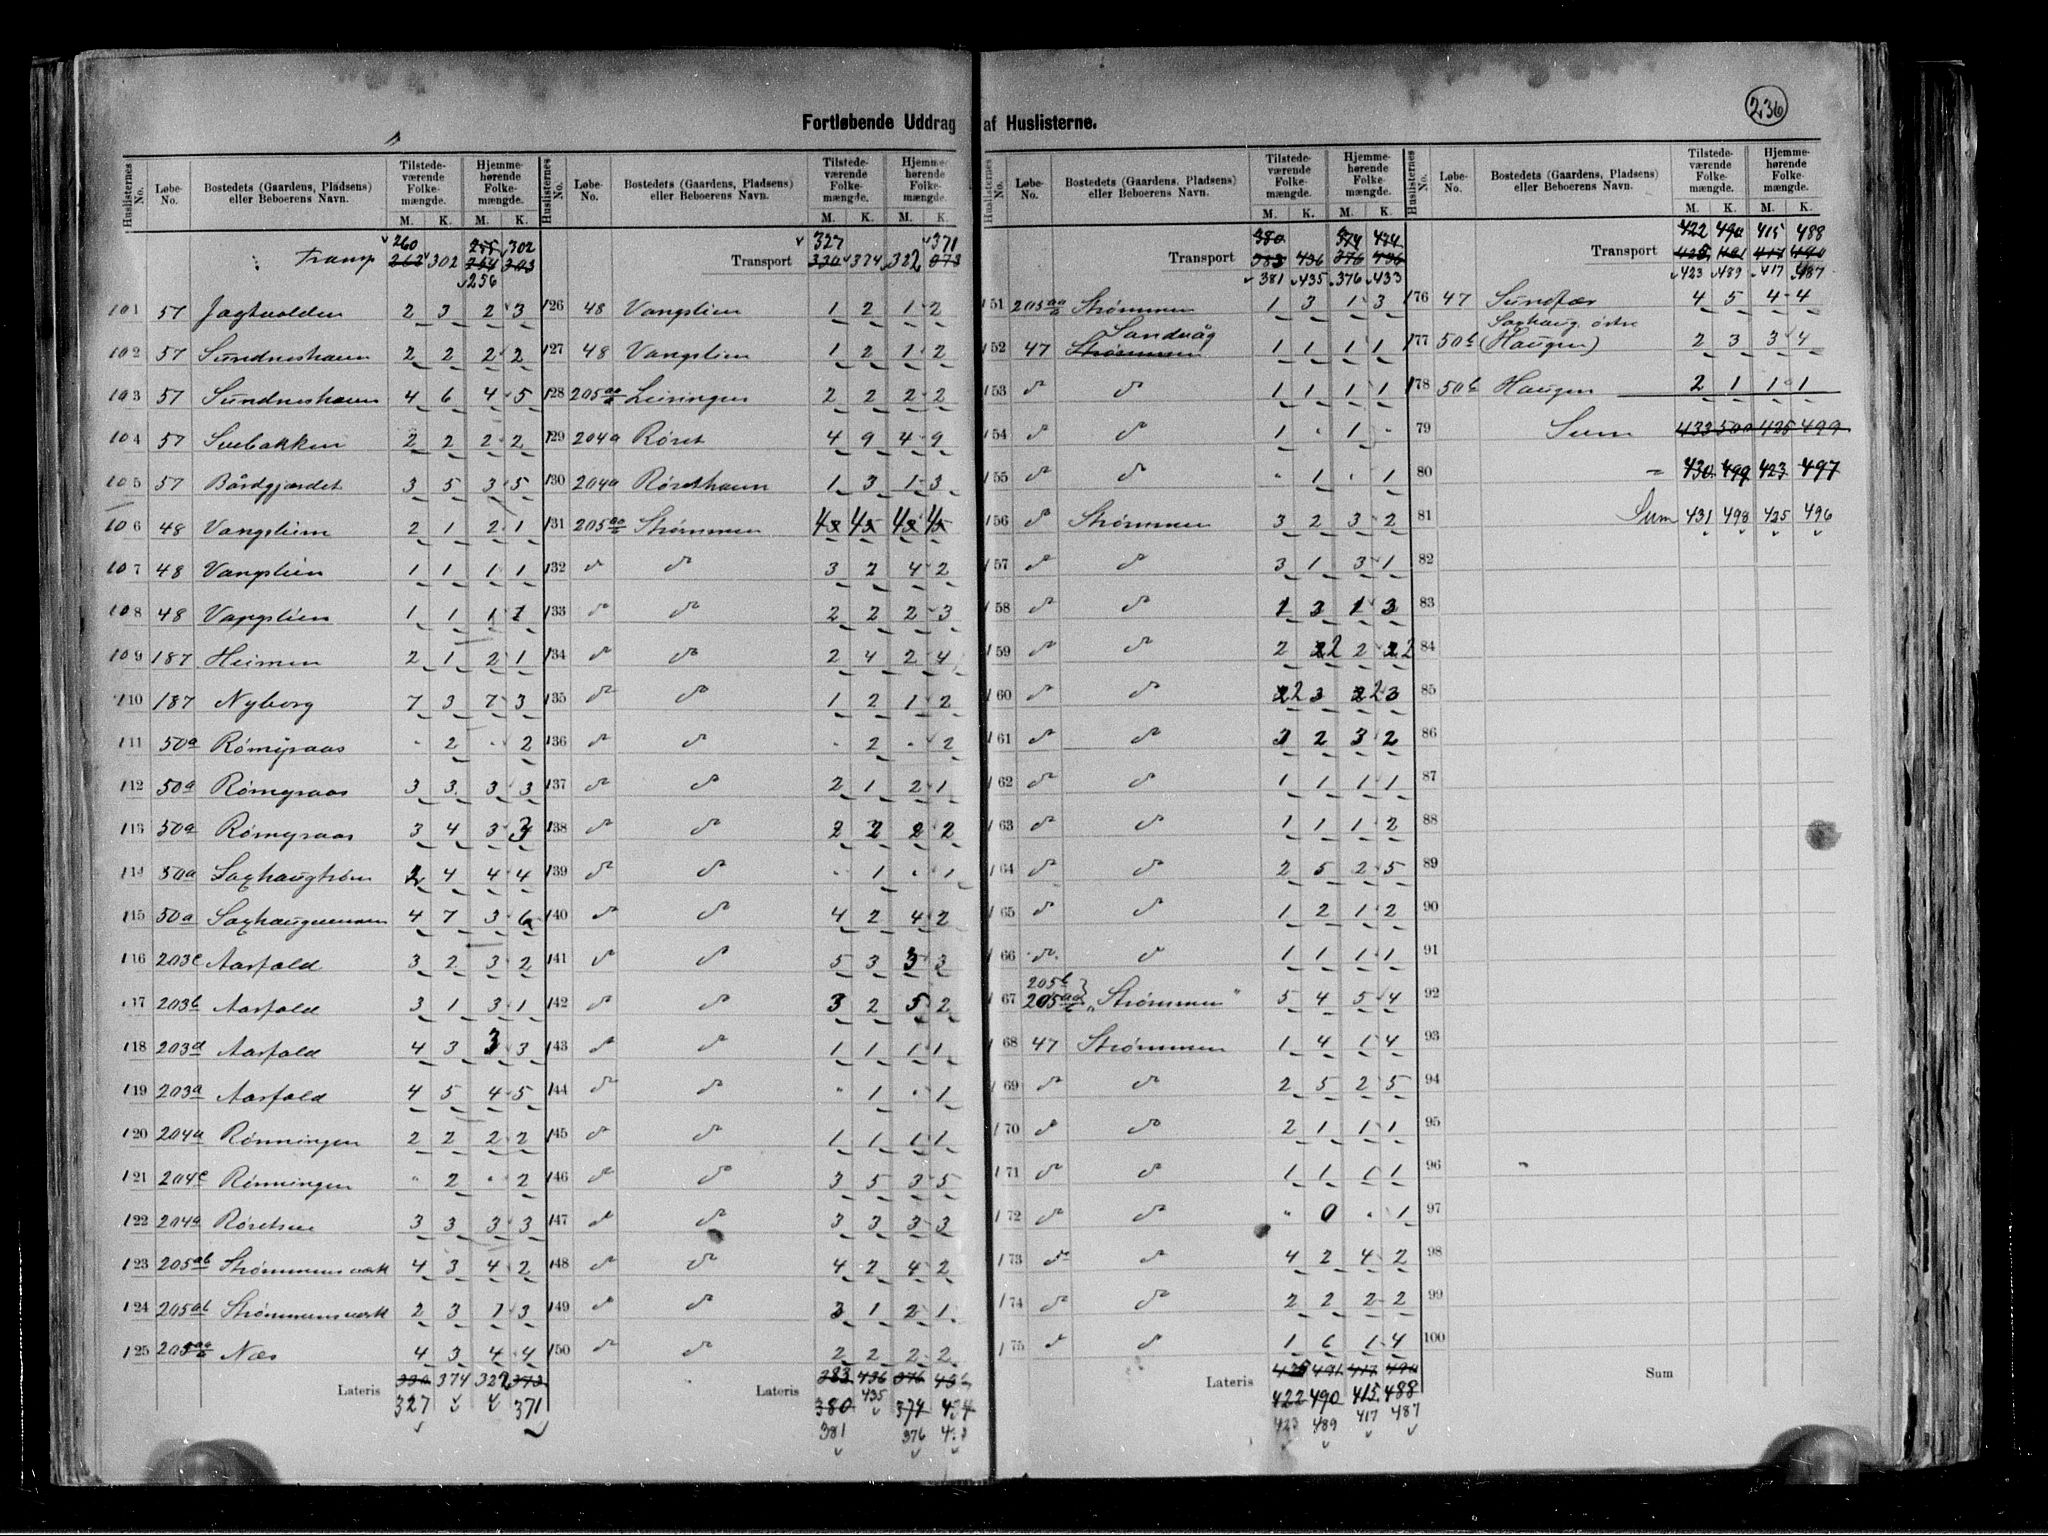 236
Fortløbende Uddrag af Huslisterne.
Huslisternes No. | Løbe-No. | Bostedets (Gaardens, Pladsens) eller Beboerens Navn. | Tilstedeværende Folkemængde. M. K. | Hjemmehørende Folkemængde. M. K.
Transp 260 302 302
262 254 303
256
101 57 Jagtvolden 2 3 2 3
102 57 Sundneshavn 2 2 2 2
103 57 Sundneshavn 4 6 4 5
104 57 Svebakken 2 2 2 2
105 57 Bårdgjærdet 3 5 3 5
106 48 Vangslien 2 1 2 1
107 48 Vangslien 1 1 1 1
108 48 Vangslien 1 1 1 1
109 187 Heimen 2 1 2 1
110 187 Nyborg 7 3 7 3
111 50a Rømgraas " 2 " 2
112 50a Rømgraas 3 3 3 3
113 50a Rømgraas 3 4 3 3
114 50a 2 4 4 4
115 50a 4 7 3 6
116 203c Aasfald 3 2 3 2
117 203b Aasfald 3 1 3 1
118 203d Aasfald 4 3 3 3
119 203a Aasfald 4 5 4 5
120 204a Rønningen 2 2 2 2
121 204c Rønningen " 2 " 2
122 204a 3 3 3 3
123 205ab Strømmens værk 4 3 4 2
124 205ab Strømmensværk 2 3 1 3
125 205aa Næs 4 3 4 4
Lateris 330 374 322 373
327 371
Huslisternes No. | Løbe-No. | Bostedets (Gaardens, Pladsens) eller Beboerens Navn. | Tilstedeværende Folkemængde. M. K. | Hjemmehørende Folkemængde. M. K.
327 371
Transport 330 374 322 373
126 48 Vangslien 1 2 1 2
127 48 Vangslien 1 2 1 2
128 205aa Leiringen 2 2 2 2
129 204a Røret 4 9 4 9
130 204a Rørethaun 1 3 1 3
131 205aa Strømmen 4 4 4 4
132 do do 3 2 4 2
133 do do 2 2 2 3
134 do do 2 4 2 4
135 do do 1 2 1 2
136 do do " 2 " 2
137 do do 2 1 2 1
138 do do 2 2 2 2
139 do do " 1 " 1
140 do do 4 2 4 2
141 do do 5 3 3 3
142 do do 3 2 5 2
143 do do 1 1 1 1
144 do do " 1 " 1
145 do do 1 1 1 1
146 do do 3 5 3 5
147 do do 3 3 3 3
148 do do 4 2 4 2
149 do do 3 1 2 1
150 do do 2 2 2 2
Lateris 383 436 376 436
380 435 374 434
381 376
Huslisternes No. | Løbe-No. | Bostedets (Gaardens, Pladsens) eller Beboerens Navn. | Tilstedeværende Folkemængde. M. K. | Hjemmehørende Folkemængde. M. K.
380 374 434
Transport 383 436 376 436
381 435 376 433
151 205aa Strømmen 1 3 1 3
Sandvåg
152 47 Strømmen 1 1 1 1
153 do do 1 1 1 1
154 do do 1 " 1 "
155 do do " 1 " 1
156 do Strømmen 3 2 3 2
157 do do 3 1 3 1
158 do do 1 3 1 3
159 do do 2 2 2 2
160 do do 2 3 2 3
161 do do 3 2 3 2
162 do do 1 1 1 1
163 do do 1 1 1 2
164 do do 2 5 2 5
165 do do 1 2 1 2
166 do do 1 1 1 1
205b
167 205aa „Strømmen" 5 4 5 4
168 47 Strømmen 1 4 1 4
169 do do 2 5 2 5
170 do do 2 1 1 1
171 do do 1 1 1 1
172 do do " 0 " 1
173 do do 4 2 4 2
174 do do 2 2 2 2
175 do do 1 6 1 4
Lateris 425 491 417 490
422 490 415 488
423 489 417 487
Huslisternes No. | Løbe-No. | Bostedets (Gaardens, Pladsens) eller Beboerens Navn. | Tilstedeværende Folkemængde. M. K. | Hjemmehørende Folkemængde. M. K.
422 490 415 488
Transport 425 491 417 490
423 489 417 487
176 47 Sundfær 4 5 4 4
Saxhaug østre
177 50b (Haugen) 2 3 3 4
178 50b Haugen 2 1 1 1
79 Sum 433 500 425 499
80 = 430 499 423 497
81 Sum 431 498 425 496
82
83
84
85
86
87
88
89
90
91
92
93
94
95
96
97
98
99
100
Sum